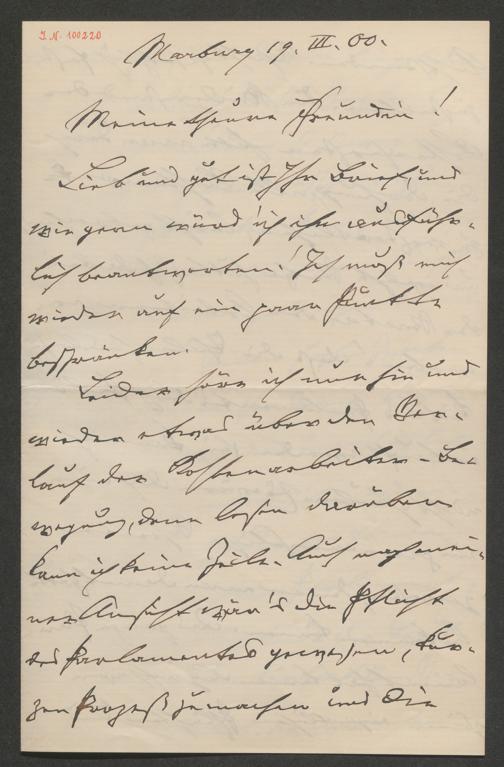 I. N. 100220
Marburg 19. III. 00.
Meine theure Freundin!
Lieb und gut ist Ihr Brief, und
wie gern würd' ich ihn ausführ-
lich beantworten! Ich muß mich
wieder auf ein paar Punkte
beschränken.
Leider höre ich nur hin und
wieder etwas über den Ver-
lauf der Kohlenarbeiter-Be-
wegung, denn lesen darüber
kann ich keine Zeile. Auch nach mei-
ner Ansicht wär's die Pflicht
des Parlamentes gewesen, kur-
zen Prozeß zu machen und die